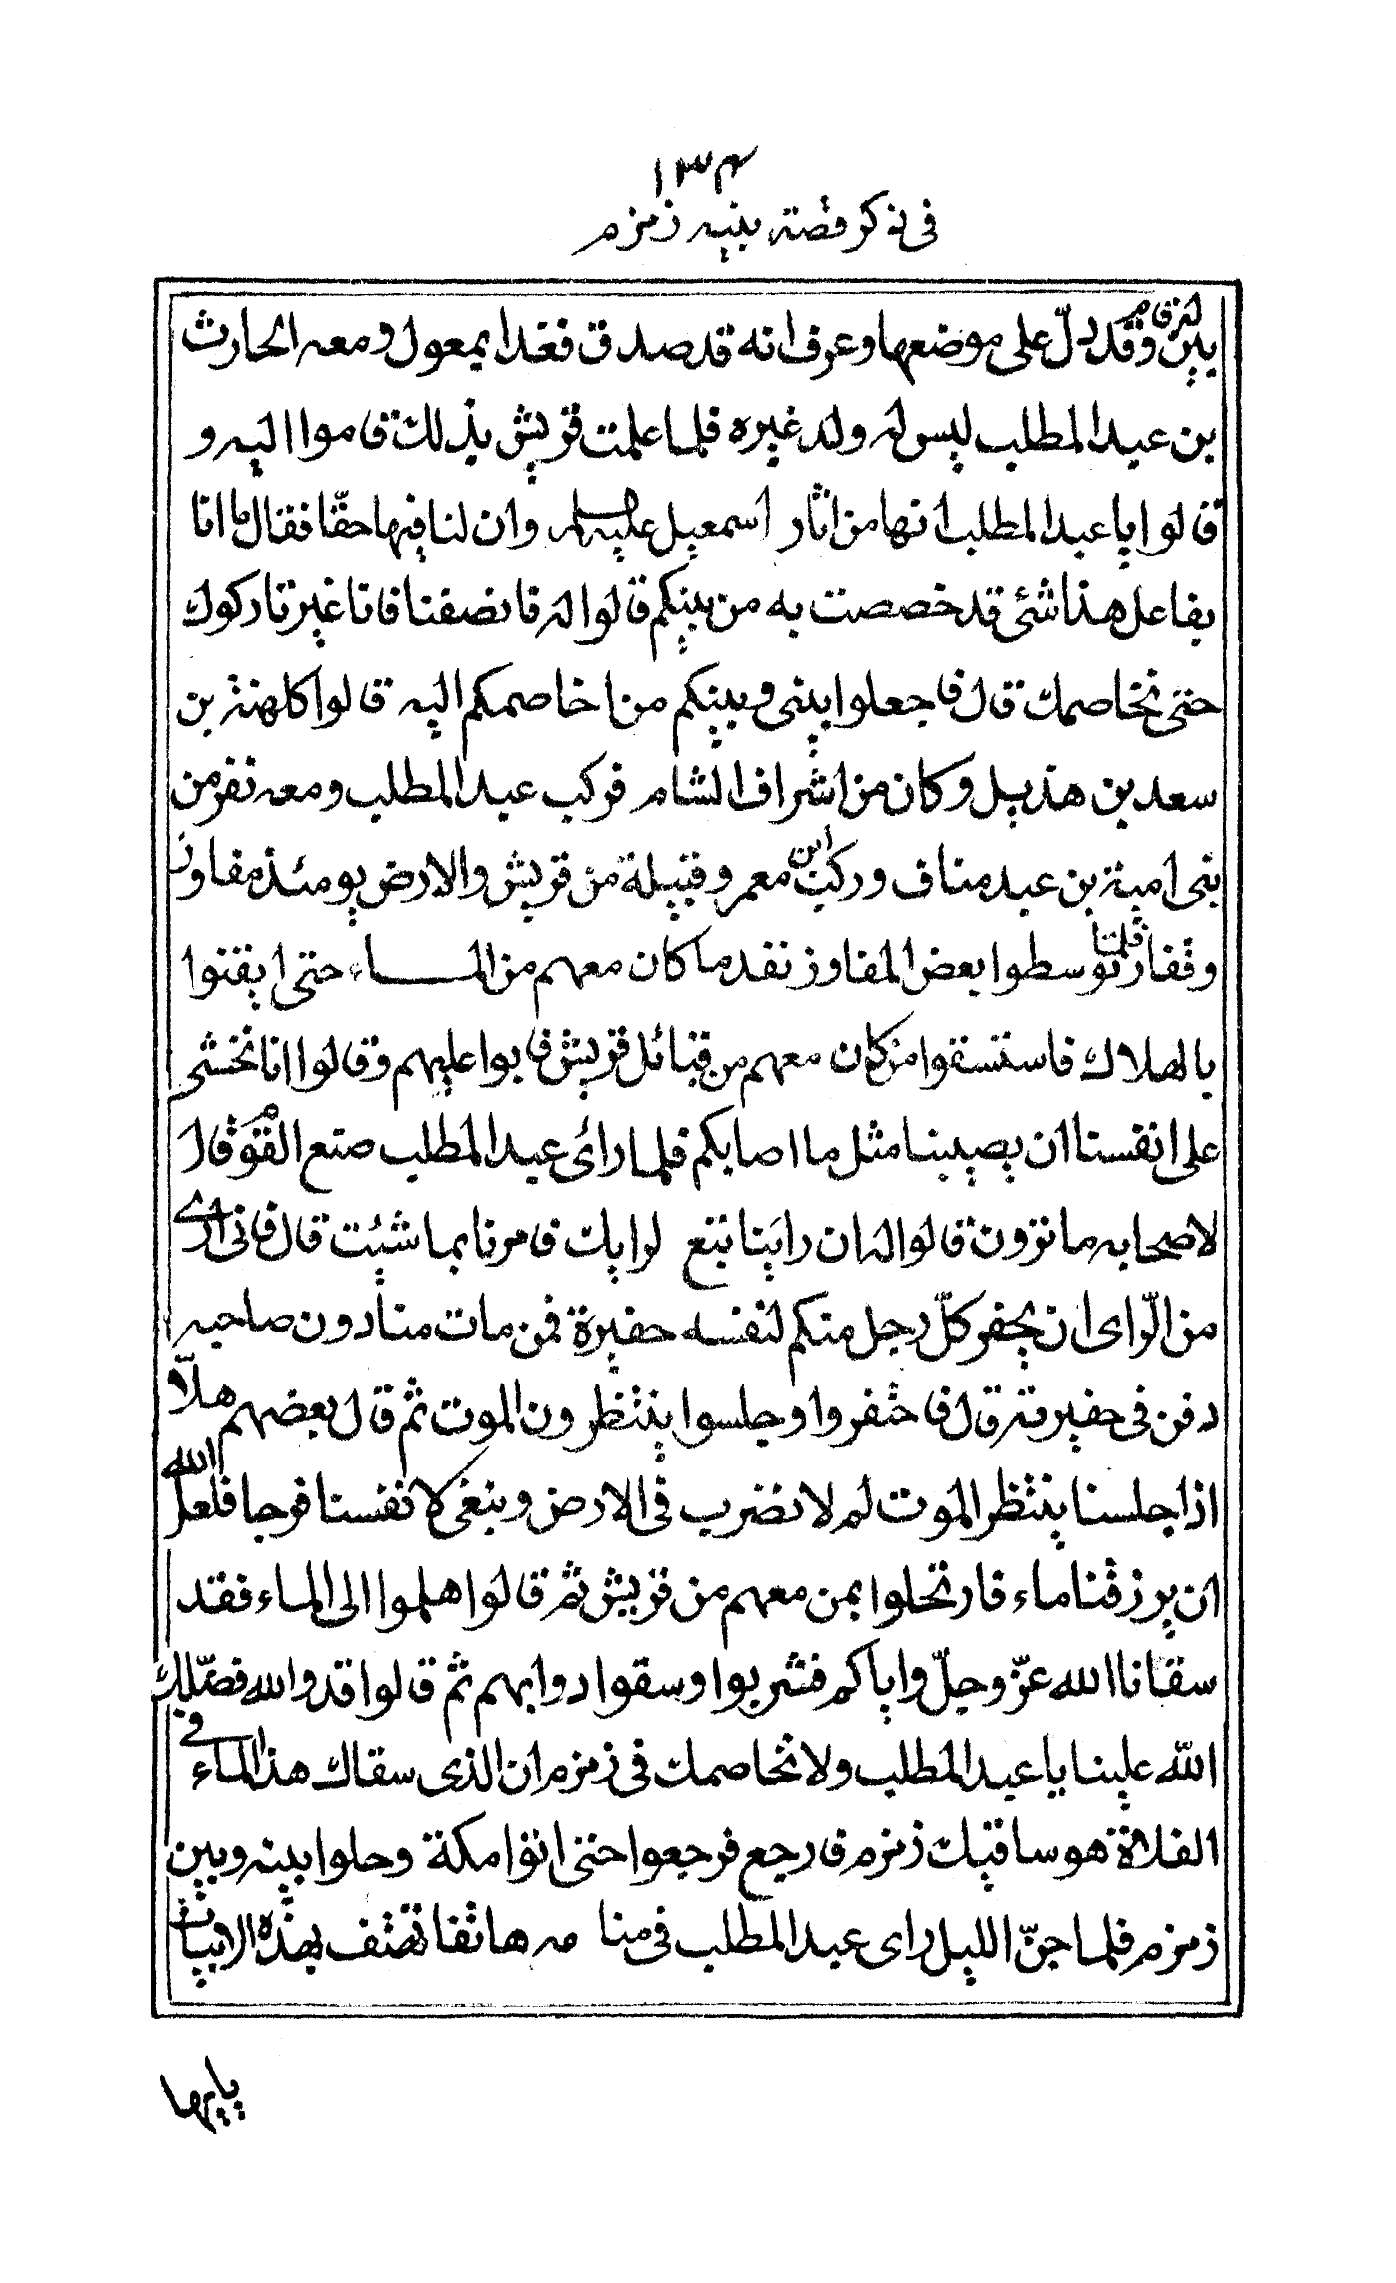 ١٣٤
فى ذكر قصة بنيه زمزم
يبين له شأنها وقد دلّ على موضعها وعرف انه قد صدق فغدا بمعول ومعه الحارث
بن عبد المطلب ليس له ولد غيره فلما علمت قريش بذلك قاموا اليه و
قالوا يا عبد المطلب انها من اثار اسمعيل عليه السلم وان لنا فيها حقّا فقال ما انا
بفاعل هذا شئ قد خصصت به من بينكم قالوا له فانصفنا فانا غير تاركوك
حتى نخاصمك قال فاجعلوا بينى وبينكم من اخاصمكم اليه قالوا كاهنة بن
سعد بن هذيل وكان من اشراف الشام فركب عبد المطلب ومعه نفر من
بنى امية بن عبد مناف وركب ابن معمر وقبيلة من قريش والارض يومئذ مفاوز
وقفار فلمّا توسطوا بعض المفاوز نفد ما كان معهم من المــاء حتى ايقنوا
بالهلاك فاستسقوا من كان معهم من قبائل قريش فابوا عليهم وقالوا انا نخشى
على انفسنا ان يصيبنا مثل ما اصابكم فلما رائ عبد المطلب صنع القوم وقال
لاصحابه ما ترون قالوا له ان راينا تبع لرايك فامرنا بما شئت قال فانى ارى
من الرّاى ان يحفر كلّ رجل منكم لنفسه حفيرة فمن مات منا دون صاحبه
دفن فى حفيرته قال فاحتفروا وجلسوا ينتظرون الموت ثم قال بعضهم هلّا
اذا جلسنا ينتظر الموت لم لا نضرب فى الارض ونبغى لانفسنا فرجا فلعل الله
ان يرزقنا ماء فارتحلوا بمن معهم من قريش ثم قالوا هلموا الى الماء فقد
سقانا الله عزّ وجلّ واياكم فشربوا وسقوا دوابهم ثم قالوا قد والله فضّلك
الله علينا يا عبد المطلب ولا نخاصمك فى زمزم ان الذى سقاك هذا الماء فى
الفلاة هو ساقيك زمزم فارجع فرجعوا حتى اتوا مكة وحلوا بينه وبين
زمزم فلما جنّ الليل راى عبد المطلب فى منامه هاتفا تهتف بهذه الابيات
يا ايها